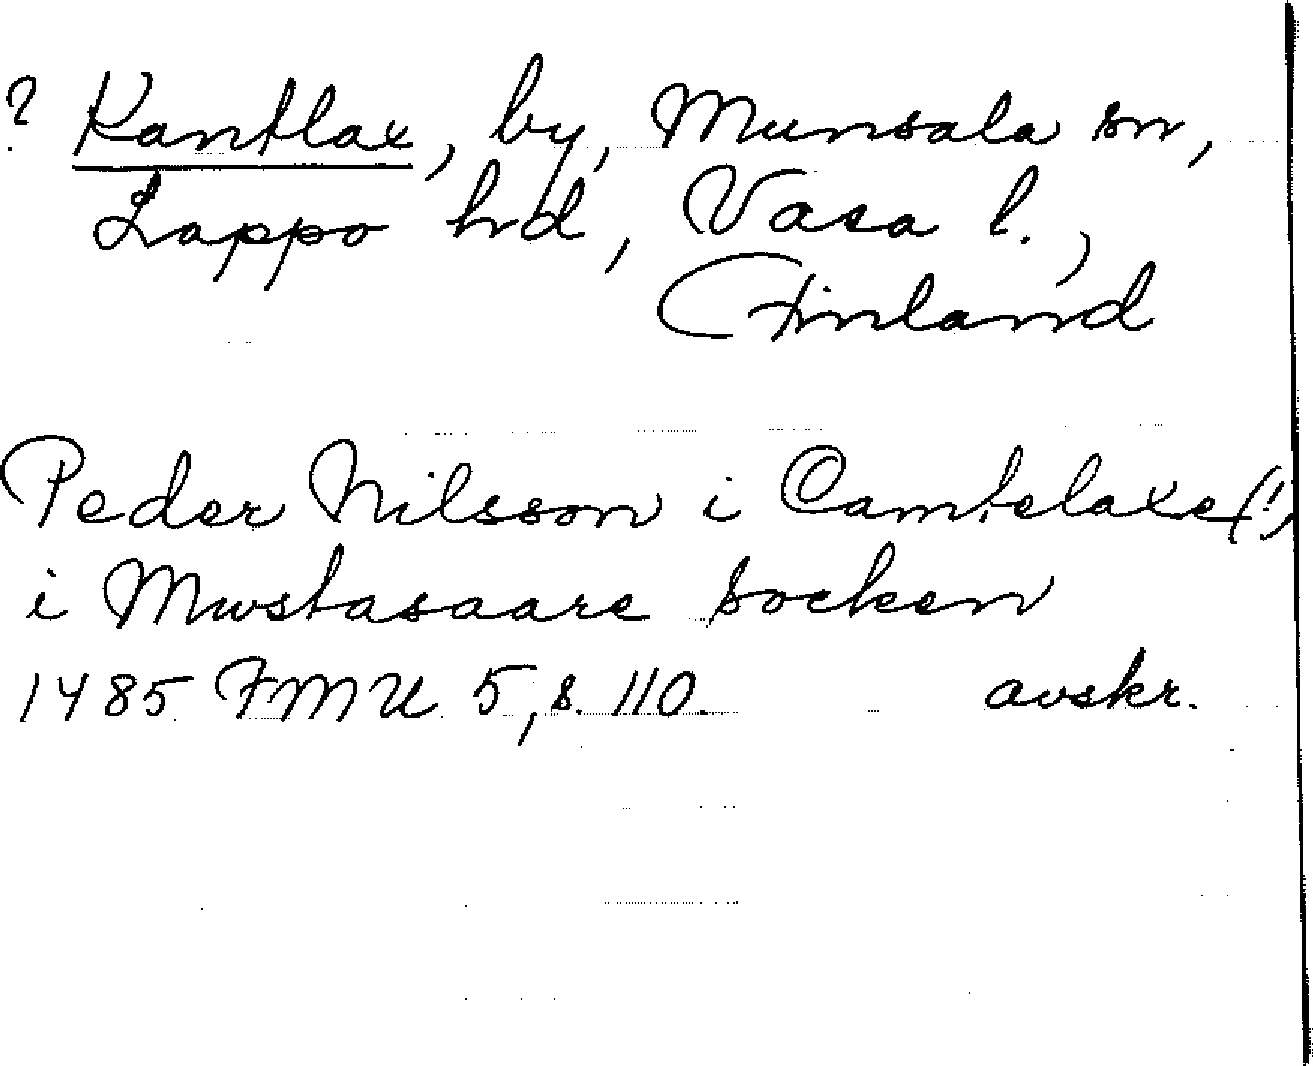 ? Kantlax, by, Munsala sn,
Lappo hd, Vasa l.,
Finland
Peder Nilsson i Camtelaxe (!)
i Mwstasaare socken
1485 FMU 5, s. 110. avskr.